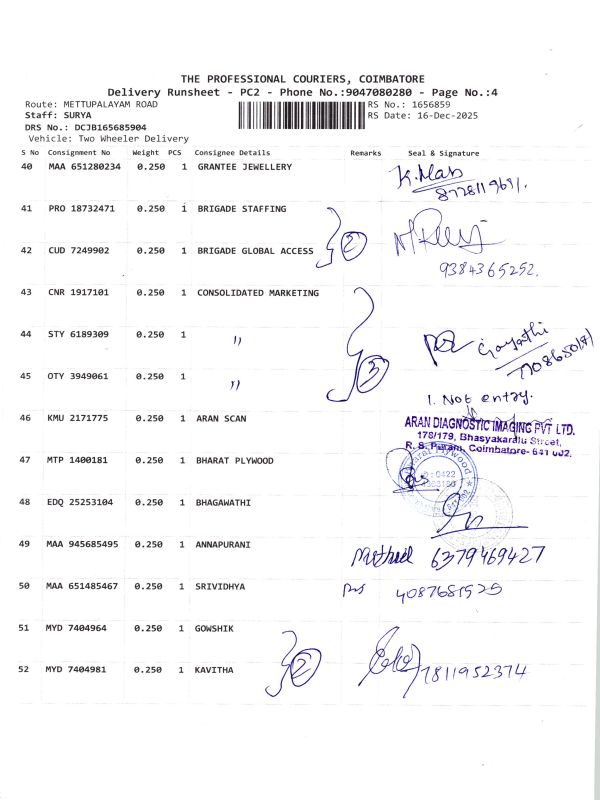 THE PROFESSIONAL COURIERS, COIMBATORE
Delivery Runsheet - PC2 - Phone No.:9047080280 - Page No.:4
Route: METTUPALAYAM ROAD RS No.: 1656859
Staff: SURYA RS Date: 16-Dec-2025
DRS No.: DCJB165685904
Vehicle: Two Wheeler Delivery
S No Consignment No Weight PCS Consignee Details Remarks Seal & Signature
40 MAA 651280234 0.250 1 GRANTEE JEWELLERY
41 PRO 18732471 0.250 1 BRIGADE STAFFING
2
42 CUD 7249902 0.250 1 BRIGADE GLOBAL ACCESS
9384365252.
43 CNR 1917101 0.250 1 CONSOLIDATED MARKETING
44 STY 6189309 0.250 1 〃
3
45 OTY 3949061 0.250 1 〃
1. Not entry.
46 KMU 2171775 0.250 1 ARAN SCAN
ARAN DIAGNOSTIC IMAGING PVT LTD.
178/179, Bhasyakaralu Street,
R. S. Puram, Coimbatore- 641 002.
47 MTP 1400181 0.250 1 BHARAT PLYWOOD
Bharat Plywood
48 EDQ 25253104 0.250 1 BHAGAWATHI
49 MAA 945685495 0.250 1 ANNAPURANI
6379469427
50 MAA 651485467 0.250 1 SRIVIDHYA
51 MYD 7404964 0.250 1 GOWSHIK
2
52 MYD 7404981 0.250 1 KAVITHA
7811952374